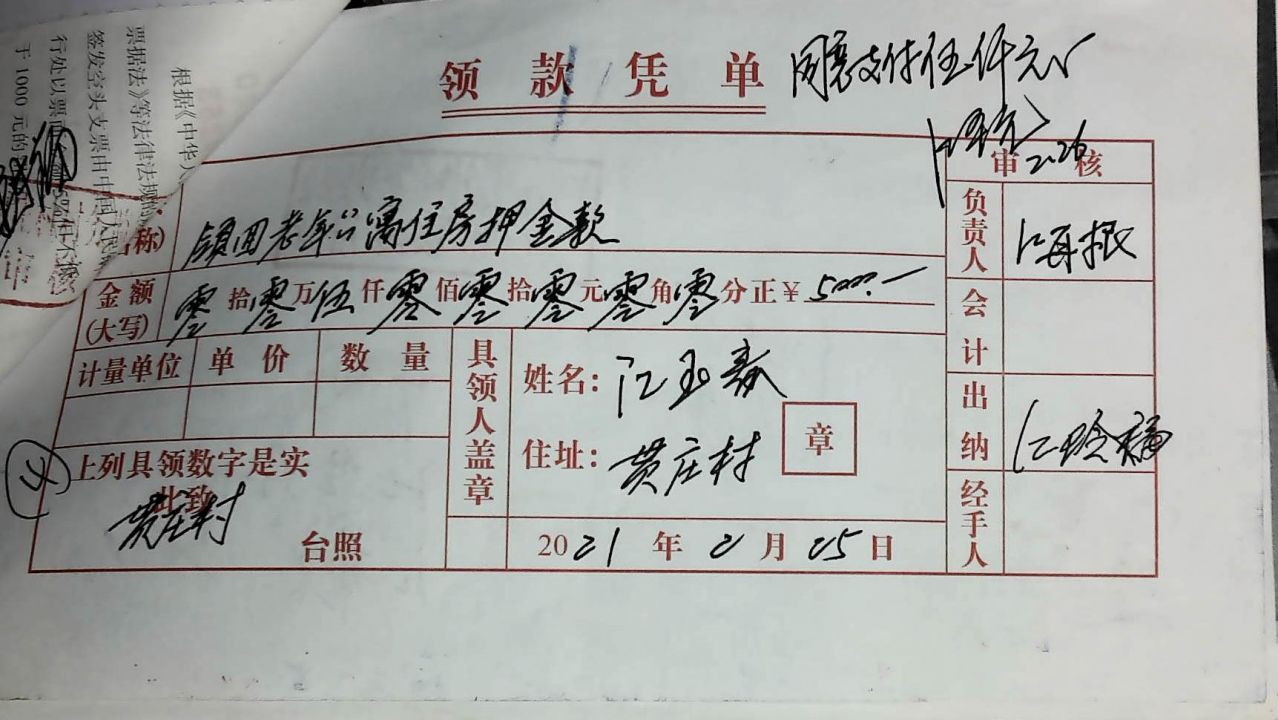 根据《中华人
票据法》等法律法规的
签发空头支票由中国人民银
行处以票面
于 1000 元的
领款凭单
同意支付伍仟元
2.26
审核
名称)
领回老年公寓住房押金款
金额(大写) 零拾零万伍仟零佰零拾零元零角零分正¥5000.-
计量单位 单价 数量
具领人盖章
姓名: 江玉森
住址: 贡庄村
章
④
上列具领数字是实
此致
贡庄村
台照
2021年2月25日
负责人 江再根
会计
出纳
经手人